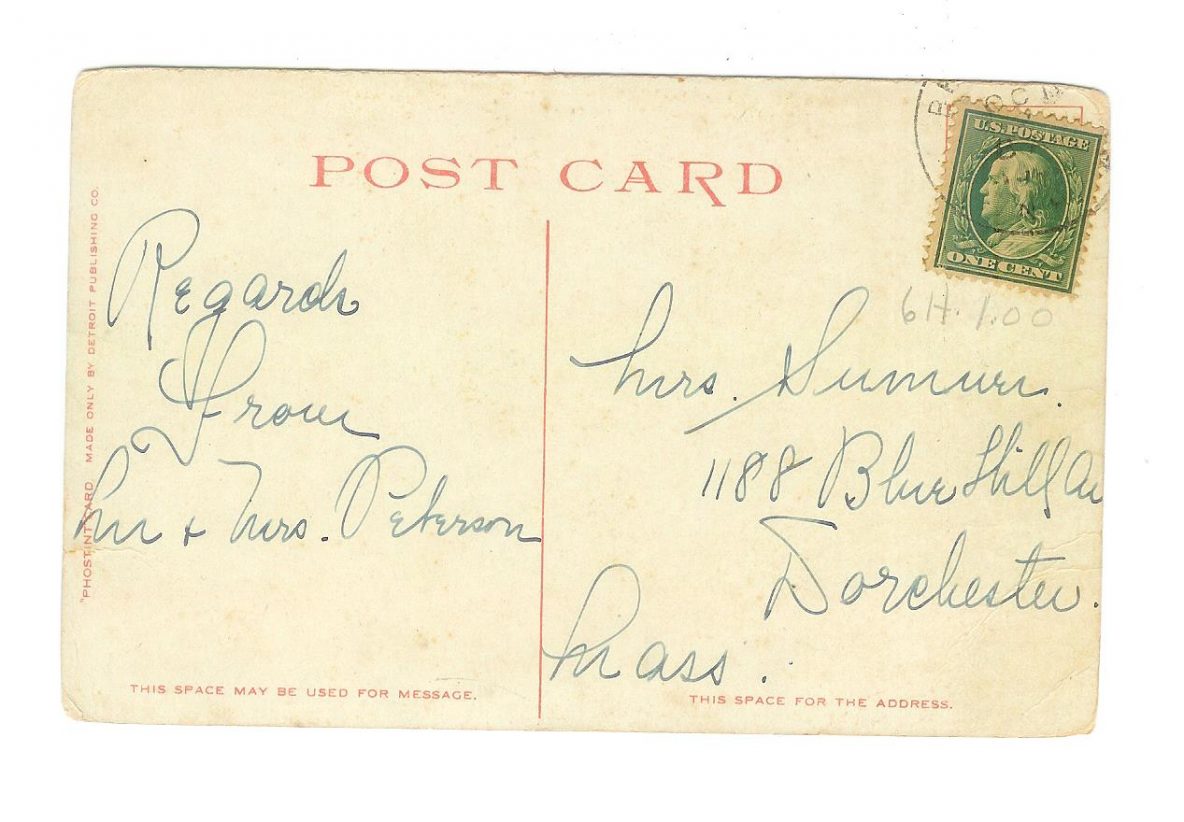 POST CARD
U.S. POSTAGE
ONE CENT
6H. 1.00
"PHOSTINT" CARD MADE ONLY BY DETROIT PUBLISHING CO.
Regards
From
Mr & Mrs. Peterson
Mrs.
1188 Blue Hill Av
Dorchester.
Mass.
THIS SPACE MAY BE USED FOR MESSAGE.
THIS SPACE FOR THE ADDRESS.